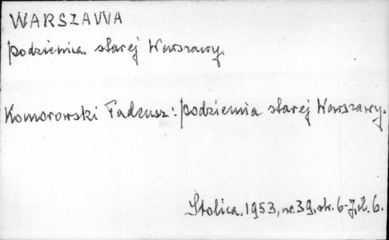 WARSZAWA
podziemia starej Warszawy.
Komorowski Tadeusz: podziemia starej Warszawy.
Stolica. 1953, nr. 39, str. 6-7, il. 6.